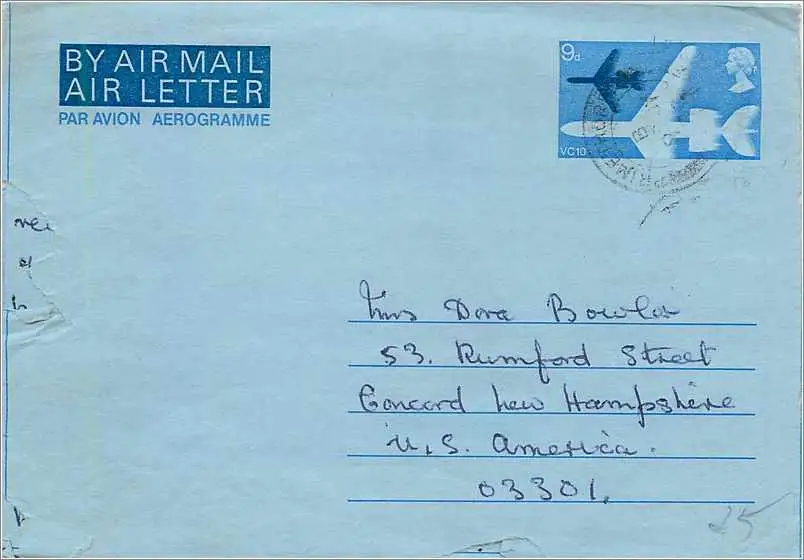 BY AIR MAIL
AIR LETTER
PAR AVION AEROGRAMME
9d
VC10
Miss Dora Bowla
53. Rumford Street
Concord New Hampshire
U.S. America.
03301.
25